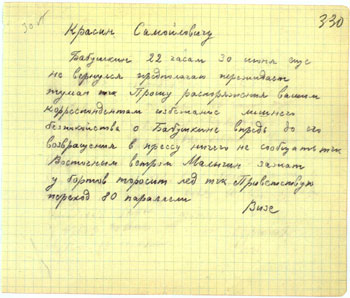 30 
330
Красин Самойловичу
Бабушкин 22 часам 30 июня еще
не вернулся предполагаю пережидает
туман тчк Прошу распоряжения вашим
корреспондентам избежание лишнего
беспокойства о Бабушкине впредь до его
возвращения в прессу ничего не сообщать тчк
Восточным ветром Малыгин зажат
у бортов торосит лед тчк Приветствую
переход 80 параллели
Визе